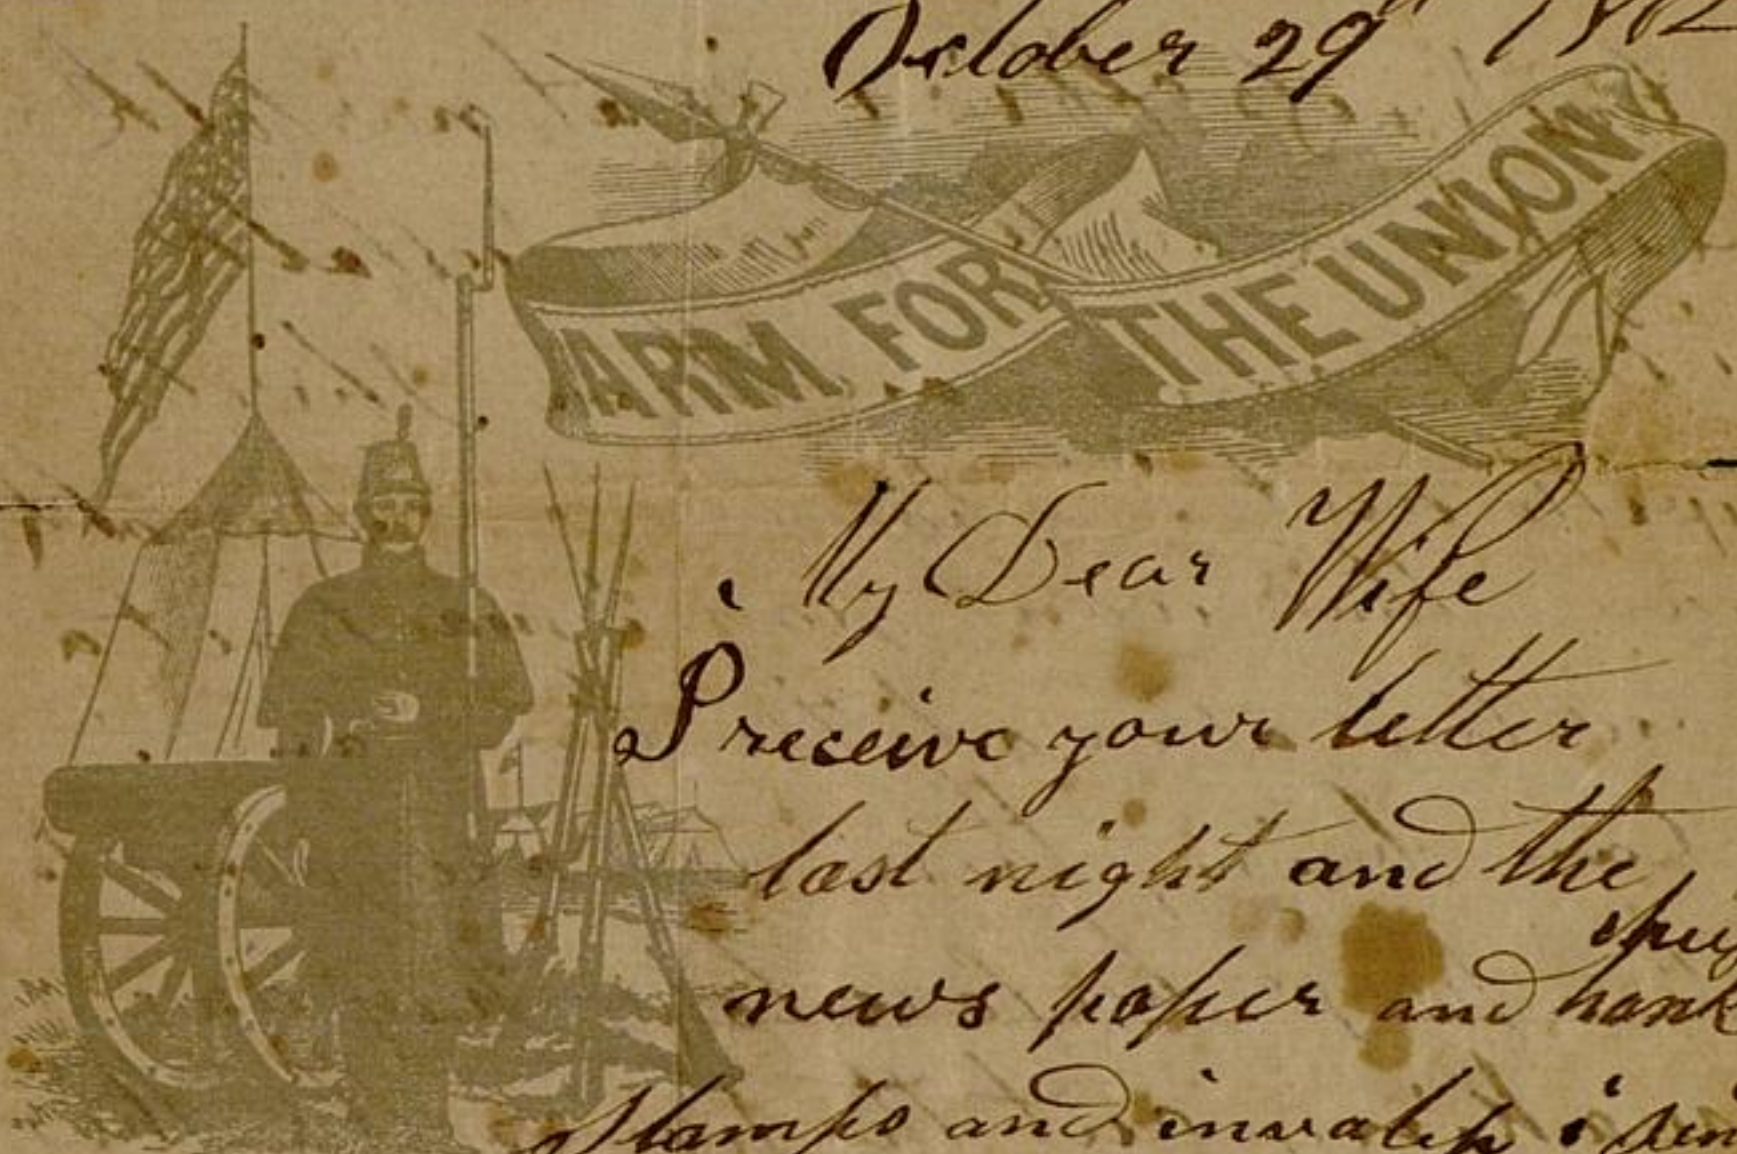 October 29th 1862
ARM FOR THE UNION
My Dear Wife
I receive your letter
last night and the
news paper and
stamps and invalip i